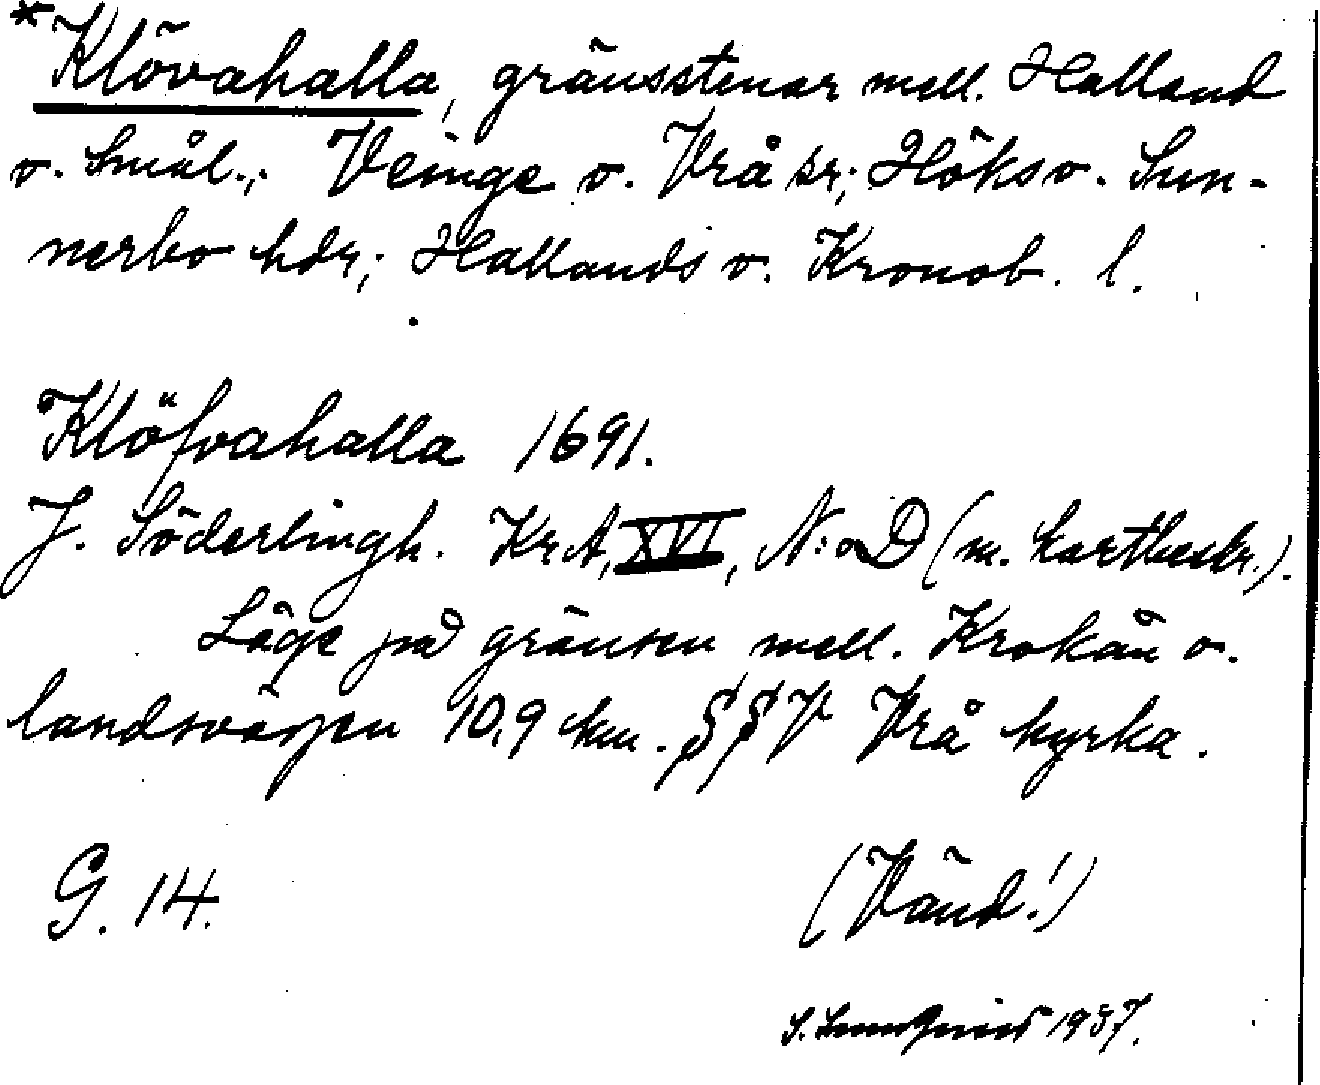 *Klövahalla, gränsstenar mell. Halland
o. Smål.; Veinge o. Vrå sr; Höks o. Sun-
nerbo hdr; Hallands o. Kronob. l.
Klöfvahalla 1691.
J. Söderlingh. Kr.A, XVI, N:o D (m. kartbeskr.).
Läge på gränsen mell. Krokån o.
landsvägen 10,9 km. SSV Vrå kyrka.
G. 14.
(Vänd!)
S. 1937.